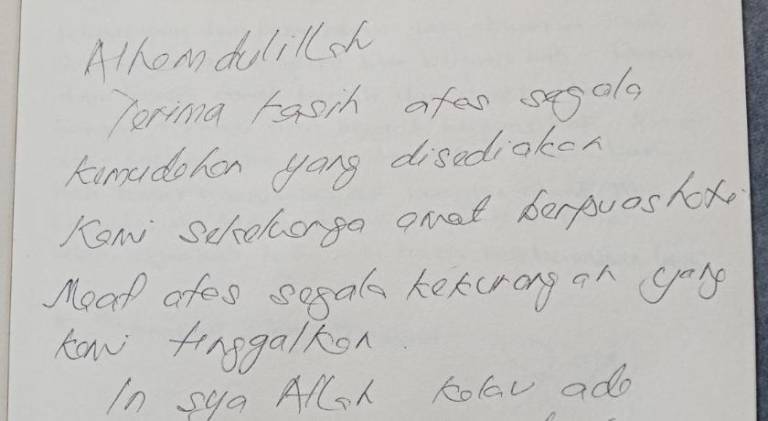 Alhamdulillah
Terima kasih atas segala
kemudahan yang disediakan
Kami sekeluarga amat berpuashati.
Maaf atas segala kekurangan yang
kami tinggalkan.
In sya Allah kalau ada